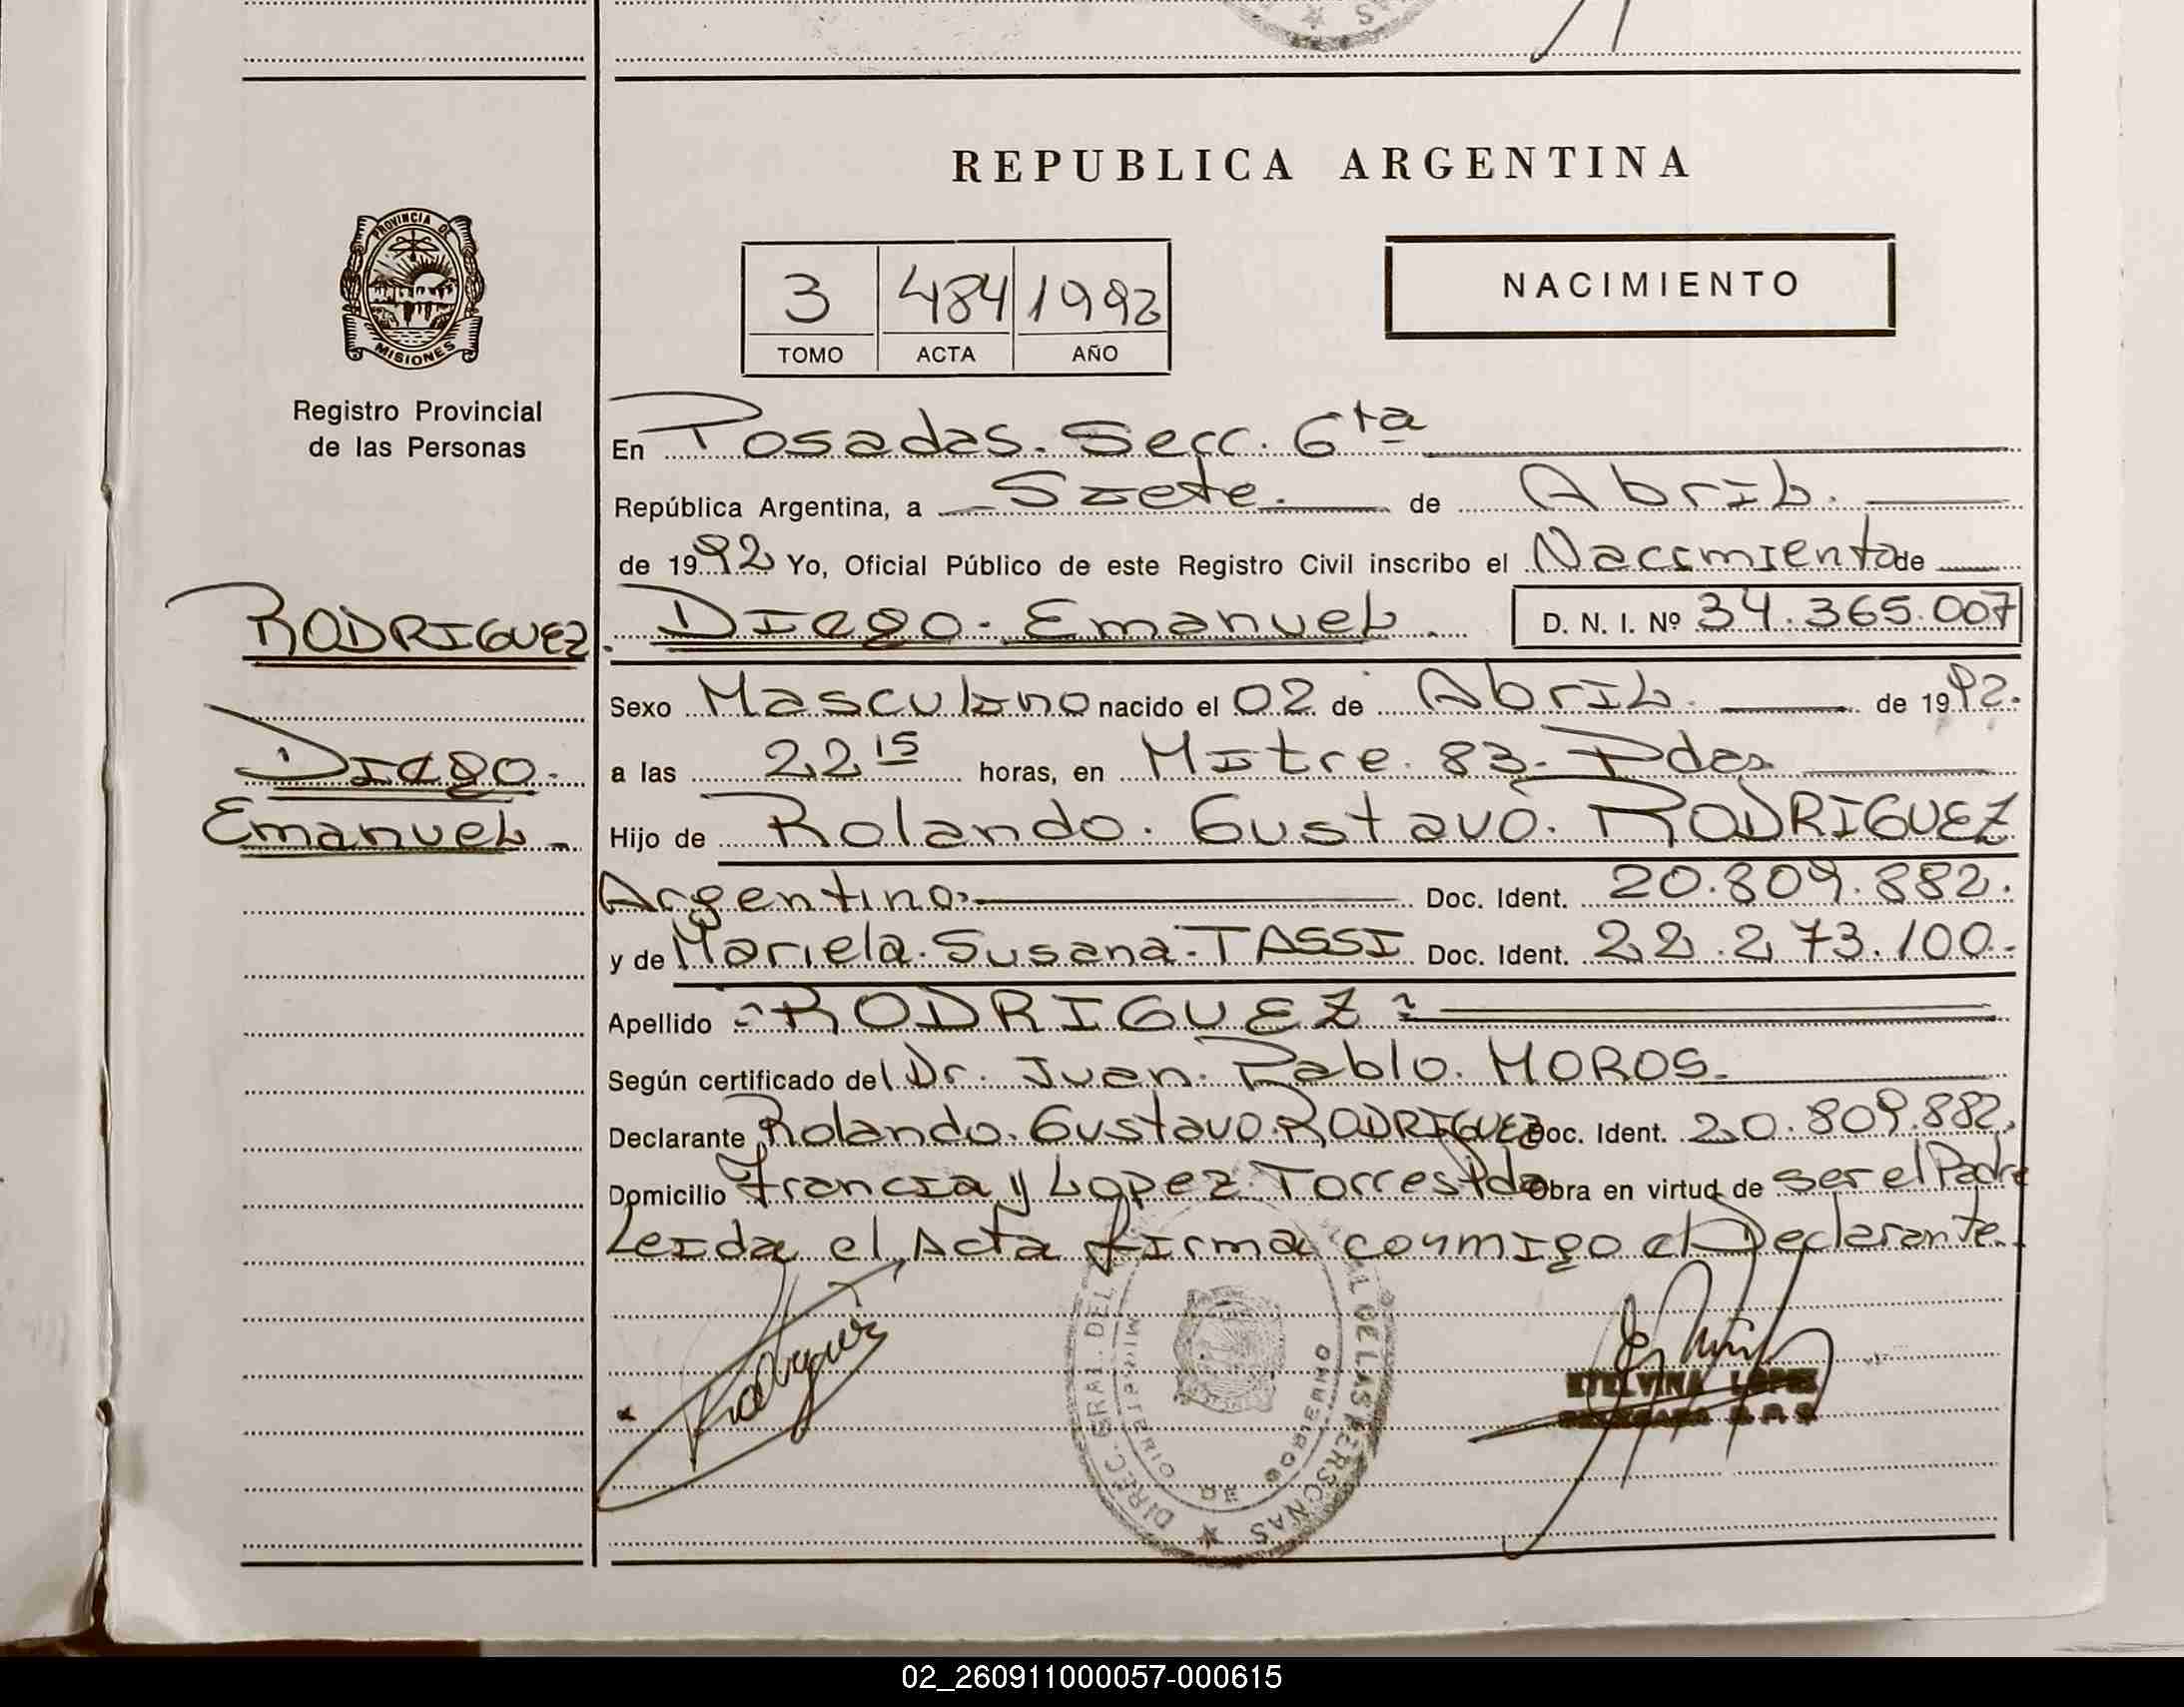 REPUBLICA ARGENTINA
PROVINCIA DE
MISIONES
Registro Provincial
de las Personas
3 484 1992
TOMO ACTA AÑO
NACIMIENTO
En Posadas. Secc. 6ta
República Argentina, a Siete. de Abril.
de 1992 Yo, Oficial Público de este Registro Civil inscribo el Nacimiento de
RODRIGUEZ. Diego. Emanuel. D. N. I. Nº 34.365.007
Sexo Masculino nacido el 02 de Abril. de 1992.
Diego.
a las 22 15 horas, en Mitre. 83. Pdas
Emanuel.
Hijo de Rolando. Gustavo. RODRIGUEZ
Argentino. Doc. Ident. 20.809.882.
y de Mariela. Susana. TASSI Doc. Ident. 22.273.100.
Apellido RODRIGUEZ
Según certificado del Dr. Juan. Pablo. MOROS.
Declarante Rolando. Gustavo. RODRIGUEZ Doc. Ident. 20.809.882.
Domicilio Francia y Lopez Torres Pdas Obra en virtud de ser el Padre
Leida el Acta firma conmigo el Declarante.
Rodriguez
DIREC. GRAL. DEL DE LAS PERSONAS
MINISTERIO DE GOBIERNO
ETELVINA LOPEZ
02_260911000057-000615